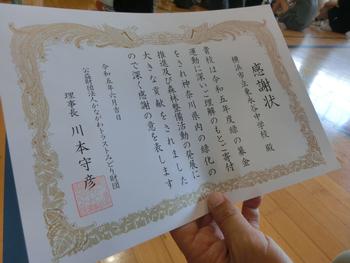 感謝状
横浜市立東永谷中学校 殿
貴校は令和五年度緑の募金
運動に深いご理解のもとご寄付
をされ神奈川県内の緑化の
推進及び森林整備活動の発展に
大きな貢献をされました
ので深く感謝の意を表します
令和五年六月吉日
公益財団法人かながわトラストみどり財団
理事長 川本守彦